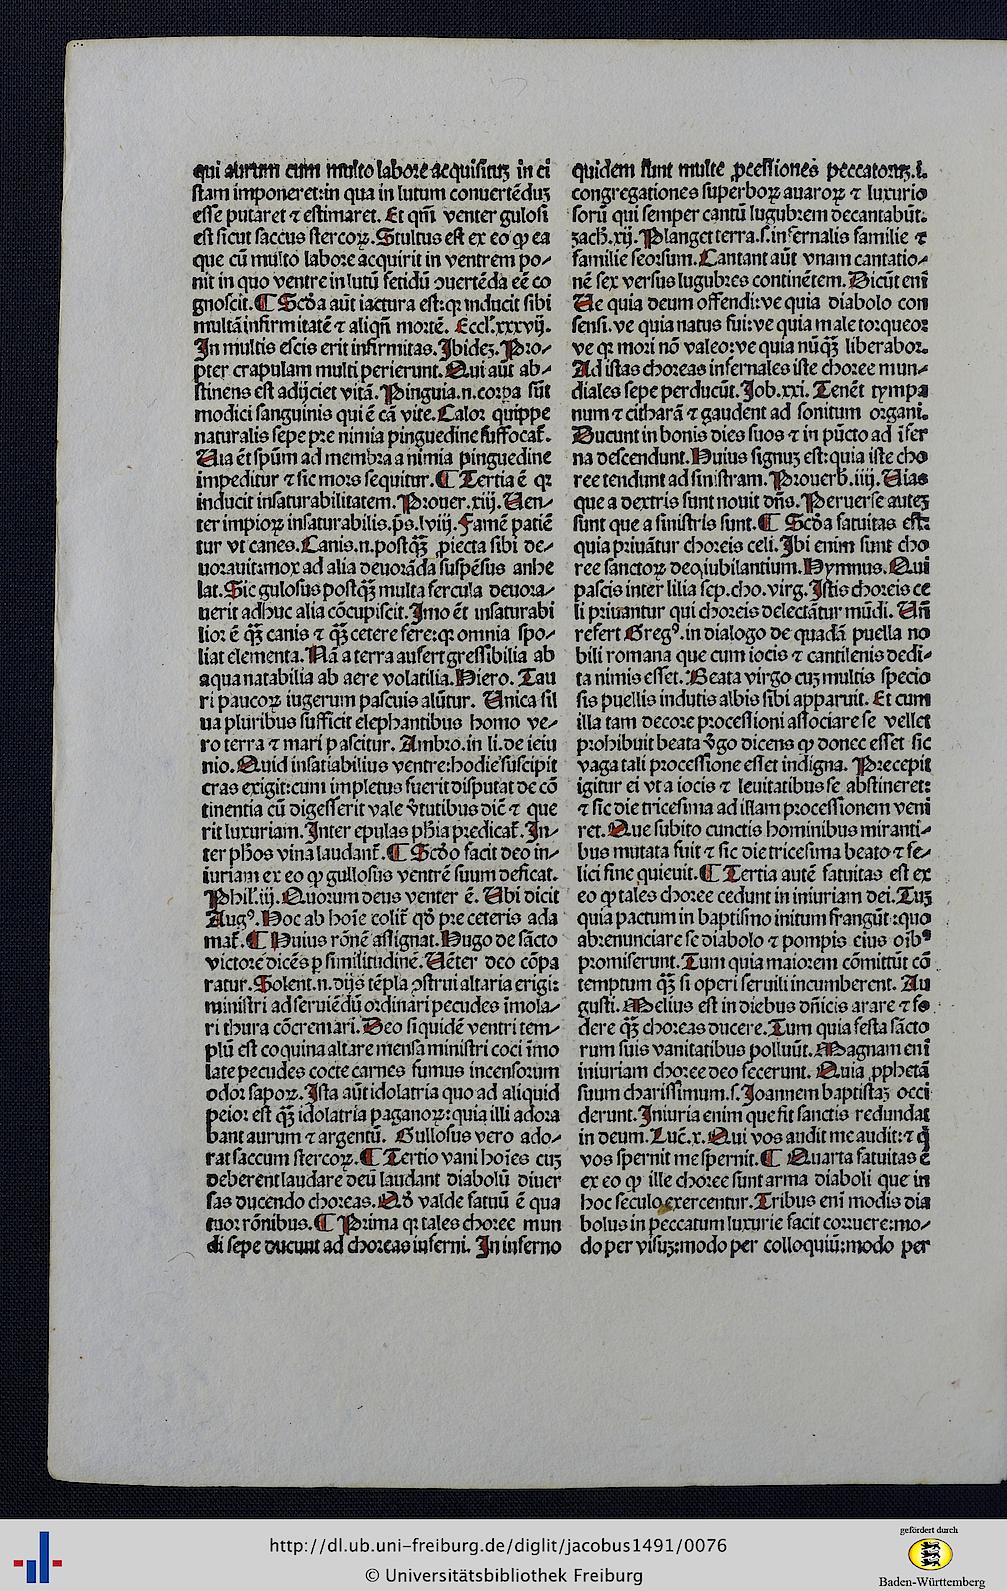 qui aurum cum multo labore acquisituꝫ in ci
stam imponeret:in qua in lutum conuertēduꝫ
esse putaret ⁊ estimaret. Et qm̄ venter gulosi
est sicut saccus stercoꝝ. Stultus est ex eo ꝙ ea
que cū multo labore acquirit in ventrem po-
nit in quo ventre in lutū fetidū ꝯuertēda eē co
gnoscit. ¶ Scd̓a aūt iactura est:qꝛ inducit sibi
multā infirmitatē ⁊ aliqn̄ mortē. Eccl̓. xxxvij.
In multis escis erit infirmitas. Ibideꝫ. Pro-
pter crapulam multi perierunt. Qui aūt ab-
stinens est adijciet vitā. Pinguia.n.corpa sūt
modici sanguinis qui ē cā vite. Calor quippe
naturalis sepe pre nimia pinguedine suffocat̄.
Uia ēt spūm ad membra a nimia pinguedine
impeditur ⁊ sic mors sequitur. ¶ Tertia ē qꝛ
inducit insaturabilitatem. Prouer. xiij. Uen-
ter impioꝝ insaturabilis. ps̄. lviij. Famē patiē
tur vt canes. Canis.n.postqꝫ ꝓiecta sibi de-
uorauit:mox ad alia deuorāda suspēsus anhe
lat. Sic gulosus postqꝫ multa fercula deuora-
uerit adhuc alia cōcupiscit. Imo ēt insaturabi
lior ē qꝫ canis ⁊ qꝫ cetere fere:qꝛ omnia spo-
liat elementa. Nā a terra aufert gressibilia ab
aqua natabilia ab aere volatilia. Hiero. Tau
ri paucoꝝ iugerum pascuis alūtur. Unica sil
ua pluribus sufficit elephantibus homo ve-
ro terra ⁊ mari pascitur. Ambro. in li. de ieiu
nio. Quid insatiabilius ventre:hodie suscipit
cras exigit:cum impletus fuerit disputat de cō
tinentia cū digesserit vale v̓tutibus dic̄ ⁊ que
rit luxuriam. Inter epulas ph̓ia predicat̄. In-
ter ph̓os vina laudant̄. ¶ Scd̓o facit deo in-
iuriam ex eo ꝙ gullosus ventrē suum deficat.
Phil̓. iij. Quorum deus venter ē. Ubi dicit
Augꝰ. Hoc ab hoīe colit̄ qd̓ pre ceteris ada
mat̄. ¶ Huius rōnē assignat. Hugo de sācto
victore dicēs ꝑ similitudinē. Uēter deo cōpa
ratur. Solent.n.dijs tēpla ꝯstrui altaria erigi:
ministri ad seruiēdū ordinari pecudes īmola-
ri thura cōcremari. Deo siquidē ventri tem-
plū est coquina altare mensa ministri coci īmo
late pecudes cocte carnes fumus incensorum
odor sapoꝝ. Ista aūt idolatria quo ad aliquid
peior est qꝫ idolatria paganoꝝ:quia illi adora
bant aurum ⁊ argentū. Gullosus vero ado-
rat saccum stercoꝝ. ¶ Tertio vani hoīes cuꝫ
deberent laudare deū laudant diabolū diuer
sas ducendo choreas. Qd̓ valde fatuū ē qua
tuor rōnibus. ¶ Prima qꝛ tales choree mun
di sepe ducunt ad choreas inferni. In inferno
quidem sunt multe ꝓcessiones peccatoꝝ. i.
congregationes superboꝝ auaroꝝ ⁊ luxurio
sorū qui semper cantū lugubrem decantabūt.
zach. xij. Planget terra.s.infernalis familie ⁊
familie seorsum. Cantant aūt vnam cantatio-
nē sex versus lugubres continētem. Dicūt enī
Ue quia deum offendi:ve quia diabolo con
sensi. ve quia natus fui:ve quia male torqueor
ve qꝛ mori nō valeo:ve quia nūqꝫ liberabor.
Ad istas choreas infernales iste choree mun-
diales sepe perducūt. Job. xxi. Tenēt tympa
num ⁊ citharā ⁊ gaudent ad sonitum organi.
Ducunt in bonis dies suos ⁊ in pūcto ad īfer
na descendunt. Huius signuꝫ est:quia iste cho
ree tendunt ad sinistram. Prouerb̓. iiij. Uias
que a dextris sunt nouit dn̄s. Peruerse auteꝫ
sunt que a sinistris sunt. ¶ Scd̓a fatuitas est:
quia priuātur choreis celi. Ibi enim sunt cho
ree sanctoꝝ deo iubilantium. Hymnus. Qui
pascis inter lilia sep. cho. virg. Istis choreis ce
li priuantur qui choreis delectātur mūdi. Un̄
refert Gregꝰ. in dialogo de quadā puella no
bili romana que cum iocis ⁊ cantilenis dedi-
ta nimis esset. Beata virgo cuꝫ multis specio
sis puellis indutis albis sibi apparuit. Et cum
illa tam decore processioni associare se vellet
prohibuit beata v̓go dicens ꝙ donec esset sic
vaga tali processione esset indigna. Precepit
igitur ei vt a iocis ⁊ leuitatibus se abstineret:
⁊ sic die tricesima ad illam processionem veni
ret. Que subito cunctis hominibus miranti-
bus mutata fuit ⁊ sic die tricesima beato ⁊ fe-
lici fine quieuit. ¶ Tertia autē fatuitas est ex
eo ꝙ tales choree cedunt in iniuriam dei. Tuꝫ
quia pactum in baptismo initum frangūt:quo
abrenunciare se diabolo ⁊ pompis eius oībꝰ
promiserunt. Tum quia maiorem cōmittūt cō
temptum qꝫ si operi seruili incumberent. Au
gusti. Melius est in diebus dn̄icis arare ⁊ fo
dere qꝫ choreas ducere. Tum quia festa sācto
rum suis vanitatibus polluūt. Magnam enī
iniuriam choree deo fecerunt. Quia ꝓphetā
suum charissimum.s.Joannem baptistaꝫ occi
derunt. Iniuria enim que fit sanctis redundat
in deum. Luc̄. x. Qui vos audit me audit:⁊ q̄
vos spernit me spernit. ¶ Quarta fatuitas ē
ex eo ꝙ ille choree sunt arma diaboli que in
hoc seculo exercentur. Tribus enī modis dia
bolus in peccatum luxurie facit corruere:mo-
do per visuꝫ:modo per colloquiū:modo per
http://dl.ub.uni-freiburg.de/diglit/jacobus1491/0076
© Universitätsbibliothek Freiburg
gefördert durch
Baden-Württemberg